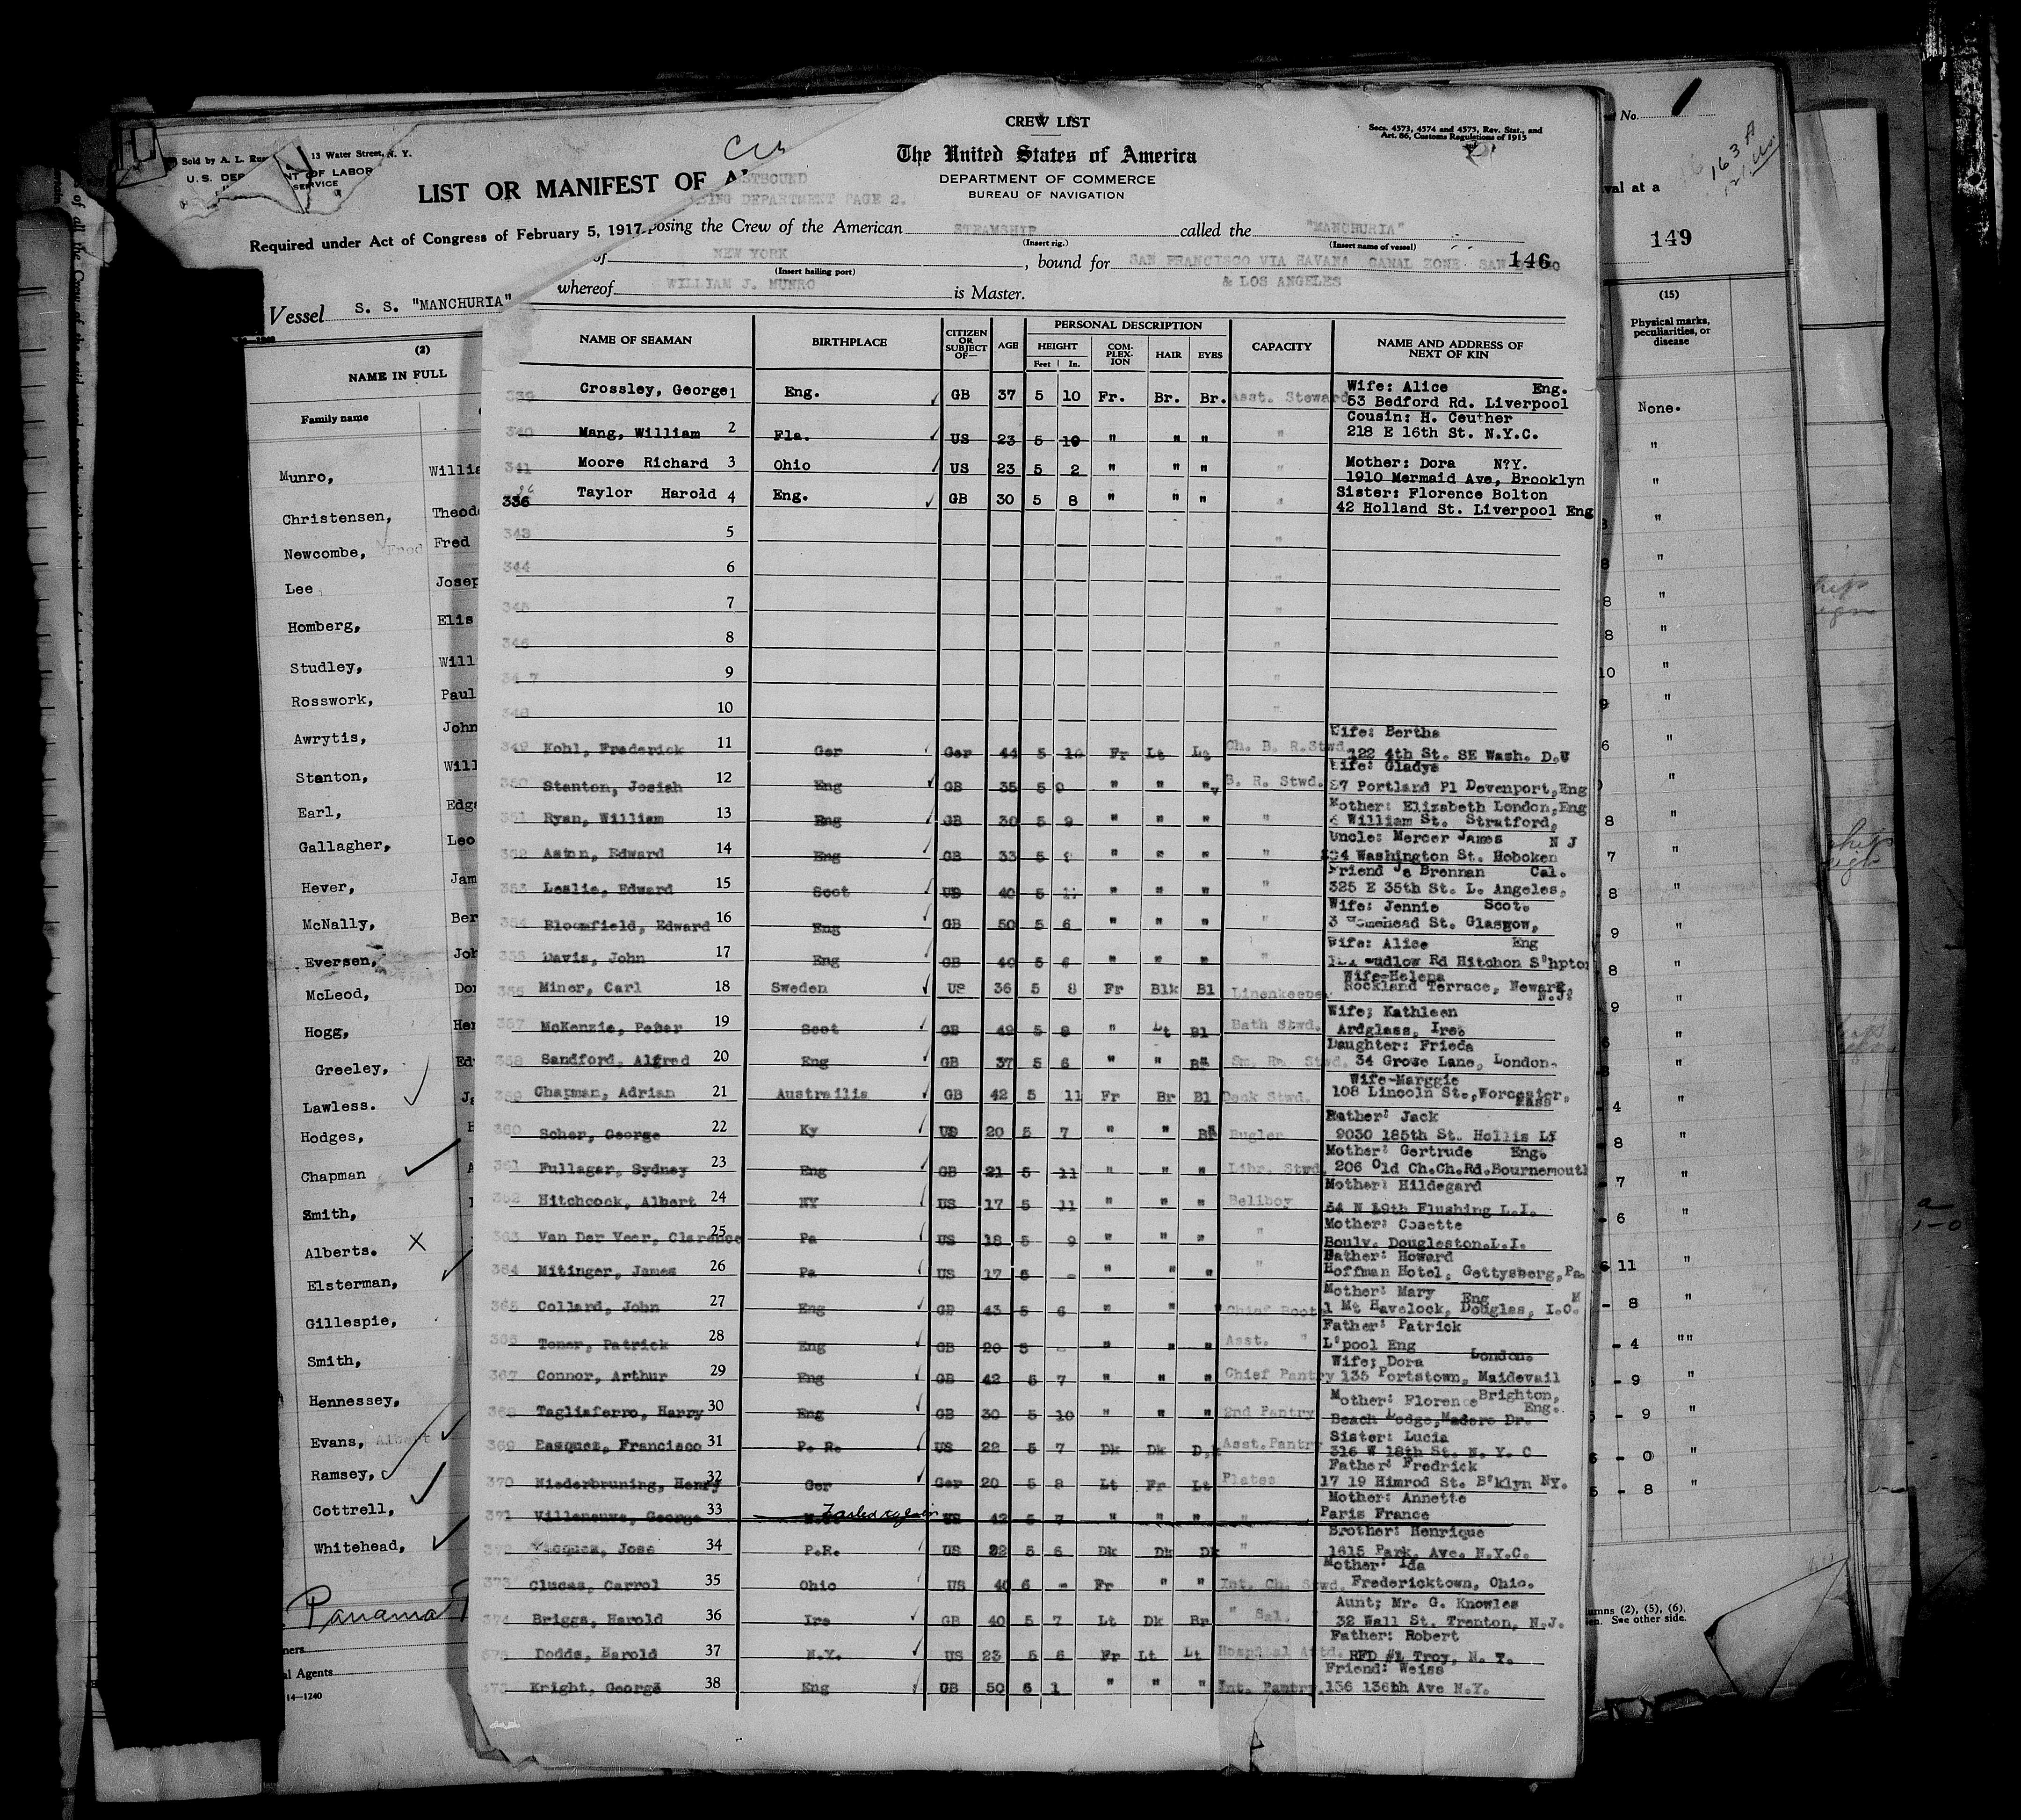 CREW LIST
Secs. 4573, 4574 and 4575, Rev. Stat., and
Art. 86, Customs Regulations of 1915
The United States of America
DEPARTMENT OF COMMERCE
BUREAU OF NAVIGATION
DEPARTMENT PAGE 2.
posing the Crew of the American STEAMSHIP called the "MANCHURIA"
(Insert rig.) (Insert name of vessel)
of NEW YORK, bound for SAN FRANCISCO VIA HAVANA CANAL ZONE SAN 146
(Insert hailing port)
whereof WILLIAM J. MUNRO is Master. & LOS ANGELES
NAME OF SEAMAN BIRTHPLACE CITIZEN OR SUBJECT OF— AGE PERSONAL DESCRIPTION CAPACITY NAME AND ADDRESS OF NEXT OF KIN
HEIGHT COMPLEXION HAIR EYES
Feet In.
339 Crossley, George 1 Eng. GB 37 5 10 Fr. Br. Br. Asst. Steward Wife: Alice Eng.
53 Bedford Rd. Liverpool
340 Mang, William 2 Fla. US 23 5 10 " " " " Cousin: H. Ceuther
218 E 16th St. N.Y.C.
341 Moore Richard 3 Ohio US 23 5 2 " " " " Mother: Dora N?Y.
1910 Mermaid Ave, Brooklyn
336 Taylor Harold 4 Eng. GB 30 5 8 " " " " Sister: Florence Bolton
42 Holland St. Liverpool Eng
343 5 "
344 6 "
345 7 "
346 8 "
347 9 "
348 10 "
349 Kohl, Frederick 11 Ger Ger 44 5 10 Fr Lt Lt Ch. B. R. Stwd. Wife: Bertha
122 4th St. SE Wash. D.
350 Stanton, Josiah 12 Eng GB 35 5 9 " " " B. R. Stwd. Wife: Gladys
27 Portland Pl Devenport, Eng
351 Ryan, William 13 Eng GB 30 5 9 " " " " Mother: Elizabeth London, Eng
William St. Stratford,
352 Aston, Edward 14 Eng GB 33 5 " " " " Uncle: Mercer James N J
Washington St. Hoboken
353 Leslie, Edward 15 Scot US 40 5 11 " " " " Friend Brennan Cal.
325 E 35th St. L. Angeles,
354 Bloomfield, Edward 16 Eng GB 50 5 6 " " " " Wife: Jennie Scot.
3 St. Glasgow,
355 Davis, John 17 Eng GB 40 5 6 " " " " Wife: Alice Eng
Ludlow Rd Hitchon S'hpton
356 Miner, Carl 18 Sweden US 36 5 8 Fr Blk Bl Linenkeeper Wife-Helena
Rockland Terrace, Newark, N.J.
357 McKenzie, Peter 19 Scot GB 49 5 8 " Lt Bl Bath Stwd. Wife; Kathleen
Ardglass, Ire.
358 Sandford, Alfred 20 Eng GB 37 5 6 " " Sm. Rm. Stwd. Daughter: Frieda
34 Grove Lane, London.
359 Chapman, Adrian 21 Austrailis GB 42 5 11 Fr Br Bl Deck Stwd. Wife-Marggie
108 Lincoln St., Worcester, Mass
360 Scher, George 22 Ky US 20 5 7 " " Bugler Father: Jack
9030 185th St. Hollis LI
361 Fullagar, Sydney 23 Eng GB 21 5 11 " " " Libr. Stwd. Mother: Gertrude Eng.
206 Old Ch.Ch.Rd. Bournemouth
362 Hitchcock, Albert 24 NY US 17 5 11 " " " Bellboy Mother: Hildegard
34 N 19th Flushing L.I.
363 Van Der Veer, Clarence 25 Pa US 18 5 9 " " " " Mother: Cosette
Boulv. Dougleston. L.I.
364 Mitinger, James 26 Pa US 17 5 - " " " " Father: Howard
Hoffman Hotel, Gettysberg, Pa.
365 Collard, John 27 Eng GB 43 5 6 " " Chief Boots Mother: Mary Eng M
1 Mt Havelock, Douglas, I.O.
366 Toner, Patrick 28 Eng GB 20 5 - " " " Asst. " Father: Patrick
L'pool Eng
367 Connor, Arthur 29 Eng GB 42 5 7 " " " Chief Pantry Wife; Dora London.
135 Portstown, Maidevail
368 Tagliaferro, Harry 30 Eng GB 30 5 10 " " " 2nd Pantry Mother: Florence Brighton, Eng.
Beach Lodge, Madero Dr.
369 Easquez, Francisco 31 P. R. US 22 5 7 Dk Dk Dk Asst. Pantry Sister: Lucia
316 W 18th St. N. Y. C
370 Niederbruning, Henry 32 Ger Ger 20 5 8 Lt Fr Lt Plates Father: Fredrick
17 19 Himrod St. B'klyn NY.
371 Villeneuve, George 33 Failed to join US 42 5 7 " " " " Mother: Annette
Paris France
372 Vacquez, Jose 34 P.R. US 22 5 6 Dk Dk Dk " Brother: Henrique
1615 Park. Ave. N.Y.C.
373 Clucas, Carrol 35 Ohio US 40 6 - Fr " " Int. Ch. Stwd. Mother: Ida
Fredericktown, Ohio.
374 Briggs, Harold 36 Ire GB 40 5 7 Lt Dk Br " Sal. Aunt; Mr. G. Knowles
32 Wall St. Trenton, N.J.
375 Dodds, Harold 37 N.Y. US 23 5 6 Fr Lt Lt Hospital Attd. Father: Robert
RFD #1 Troy, N. Y.
Kright, George 38 Eng GB 50 6 1 " " " Int. Pantry. Friend: Weiss
136 136th Ave N.Y.
Sold by A. L. 13 Water Street, N. Y.
U.S. DEPARTMENT OF LABOR
SERVICE
LIST OR MANIFEST OF
Required under Act of Congress of February 5, 1917
Vessel S. S. "MANCHURIA"
(2)
NAME IN FULL
Family name
Munro,
Christensen, Theod
Newcombe, Fred Fred
Lee Josep
Homberg, Elis
Studley, Will
Rosswork, Paul
Awrytis, John
Stanton, Will
Earl, Edga
Gallagher, Leo
Hever, Jam
McNally, Ber
Eversen, Joh
McLeod, Don
Hogg, Her
Greeley, Ed
Lawless.
Hodges,
Chapman
Smith,
Alberts.
Elsterman,
Gillespie,
Smith,
Hennessey,
Evans, Albert
Ramsey,
Cottrell,
Whitehead,
Panama
14—1240
No. 1
163 A
val at a
149
(15)
Physical marks, peculiarities, or disease
None.
columns (2), (5), (6).
See other side.